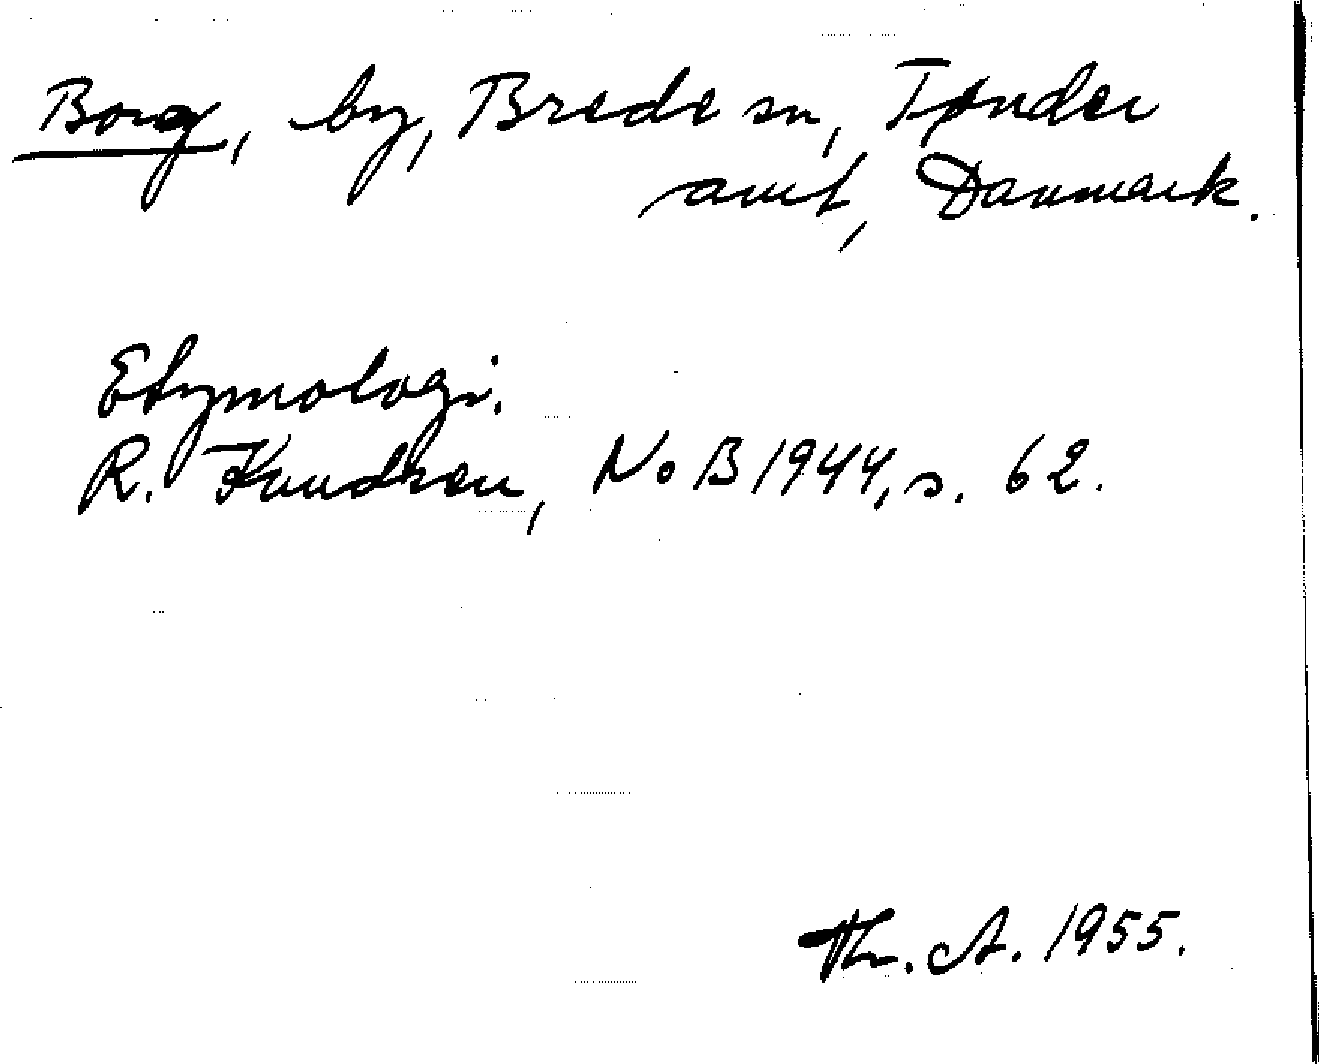 Borg, by, Brede sn, Tønder
amt, Danmark.
Etymologi.
R. Knudsen, NoB 1944, s. 62.
Th. A. 1955.